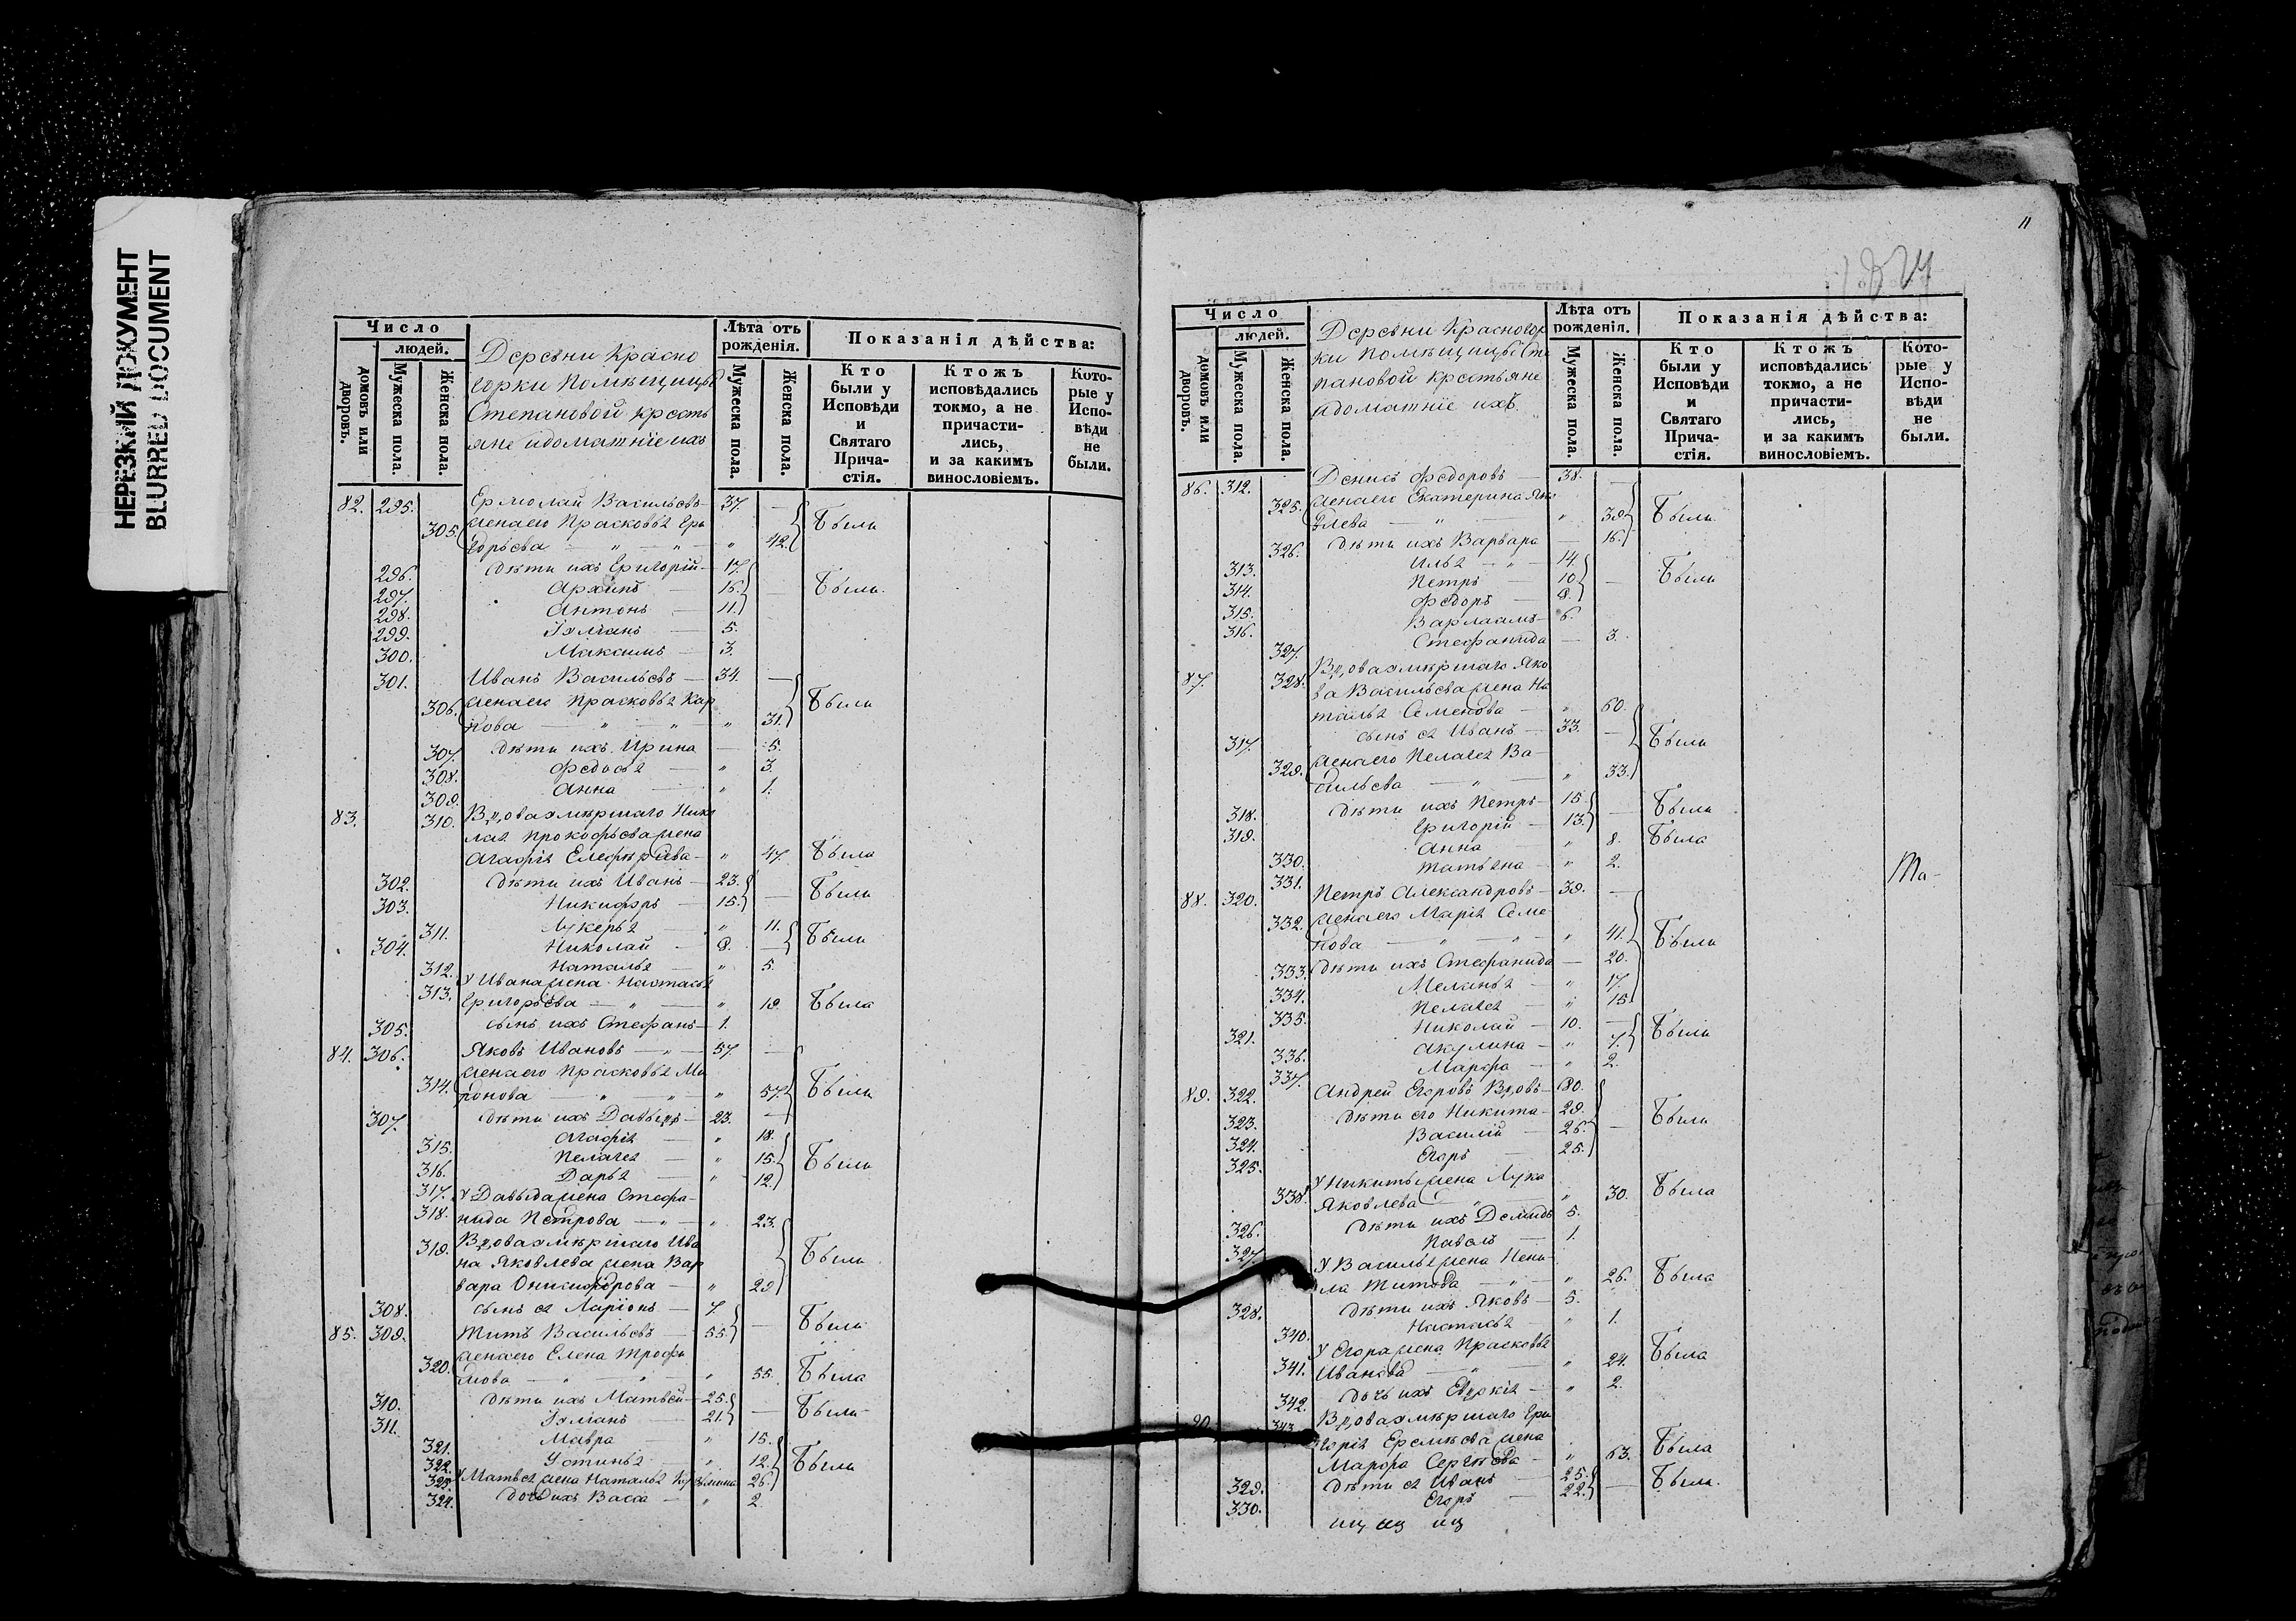 НЕРЕЗКИЙ ДОКУМЕНТ
BLURRED DOCUMENT
Число
людей.
домовъ или дворовъ.
Мужеска пола.
Женска пола.
Деревни Красно
горки Помѣщицы
Степановой кресть
яне идомашніе ихъ
Лѣта отъ рожденія.
Мужеска пола.
Женска пола.
Показанія дѣйства:
Кто были у Исповѣди и Святаго Прича-стія.
Ктожъ исповѣдались токмо, а не причасти-лись, и за какимъ винословіемъ.
Кото-рые у Испо-вѣди не были.
82. 295. Ермолай Васильевъ — 37. —
305. женаего Прасковья Гри
горьева — " — " — " 42. Были
296. дѣти ихъ Григорій — 17.
297. Архипъ — 15. — Были
298. Антонъ — 11.
299. Іуліанъ — 5.
300. Максимъ — 3.
301. Иванъ Васильевъ — 34. —
306. женаего Прасковья Кар
пова — " — " " 31. Были
307. дѣти ихъ Ирина — 5.
308. Федосья — " 3.
309. Анна — " 1.
83. 310. Вдоваумѣршаго Нико
лая Прокофьеважена
Агафія Елефѣріева — " 47. Была
302. дѣти ихъ Иванъ — 23.
303. Никифоръ — 15. — Были
311. Лукерья " 11.
304. Николай — 8. — Были
312. Наталья — " 5.
313. У Иванажена Настасья
Григорьева — " — " 19. Была
305. сынъ ихъ Стефанъ — 1.
84. 306. Яковъ Ивановъ — " — 57. —
314. женаего Прасковья Ми
ронова — " " " 57. Были
307. дѣти ихъ Давыдъ — 23. —
315. Агафія — " 18.
316. Пелагея — " 15. Были
317. Дарья — " 12.
318. У Давыдажена Стефа-
нида Петрова — " — " 23.
319. Вдоваумѣршаго Ива
на Яковлева жена Вар
вара Оникифорова — " 29 Были
308. сынъ ея Ларіонъ — 7
85. 309. Титъ Васильевъ — 55. — Были
320. женаего Елена Трофи
мова — " — " — " 55. Была
310. дѣти ихъ Матвей — 25.
311. Іуліанъ — 21. — Были
321. Мавра " 15.
322. Устинья — " 12. Были
323. У Матвея жена Наталья Кузьмина 26.
324. дочь ихъ Васса — " 2.
11
1824
Число
людей.
домовъ или дворовъ.
Мужеска пола.
Женска пола.
Деревни Красногор
ки Помѣщицы Сте
пановой крестьяне
идомашніе ихъ.
Лѣта отъ рожденія.
Мужеска пола.
Женска пола.
Показанія дѣйства:
Кто были у Исповѣди и Святаго Прича-стія.
Ктожъ исповѣдались токмо, а не причасти-лись, и за какимъ винословіемъ.
Кото-рые у Испо-вѣди не были.
86. 312. Денисъ Федоровъ — 38. —
325. женаего Екатерина Яко
влева — " — " 39. Были
326. дѣти ихъ Варвара — 16.
313. Илья — " — 14.
314. Петръ — 10. — Были
315. Федоръ — 8.
316. Варлаамъ — 6.
327. Стефанида — 3.
87. 328. Вдоваумѣршаго Яко
ва Васильеважена На
талья Семенова — " 60.
317. сынъ ея Иванъ — 33. —
329. женаего Пелагея Ва-
сильева — " — " 33. Были
318. дѣти ихъ Петръ — 15.
319. Григорій — 13. — Были
330. Анна — " 8. Была
331. Татьяна — " 2.
Ма-
88. 320. Петръ Александровъ — 39. —
332. женаего Марія Семе-
нова — " — " — " 41. Были
333. дѣти ихъ Стефанида — 20.
334. Меланья — " 17.
335. Пелагея — " 15
321. Николай — 10. —
336. Акулина — " 7. Были
337. Марфа — " 2.
89. 322. Андрей Егоровъ Вдовъ — 80.
323. дѣти его Никита — 29. — Были
324. Василій — 26.
325. Егоръ — 25.
338. У Никитыжена Лука
Яковлева — " — " 30. Была
326. дѣти ихъ Демидъ 5.
327. Павелъ — 1.
У Васильяжена Нени-
ла Титова — " — " 26. Была
328. дѣти ихъ Яковъ — 5.
340. Настасья — " 1.
341. У Егоражена Прасковья
Иванова — " — " 24. Была
342. дочь ихъ Евдокія — " 2.
90. 343. Вдоваумѣршаго Гри
горія Еремѣева жена
Марфа Сергѣева — " 63. Была
329. дѣти ея Иванъ — 25.
330. Егоръ — 22. — Были.